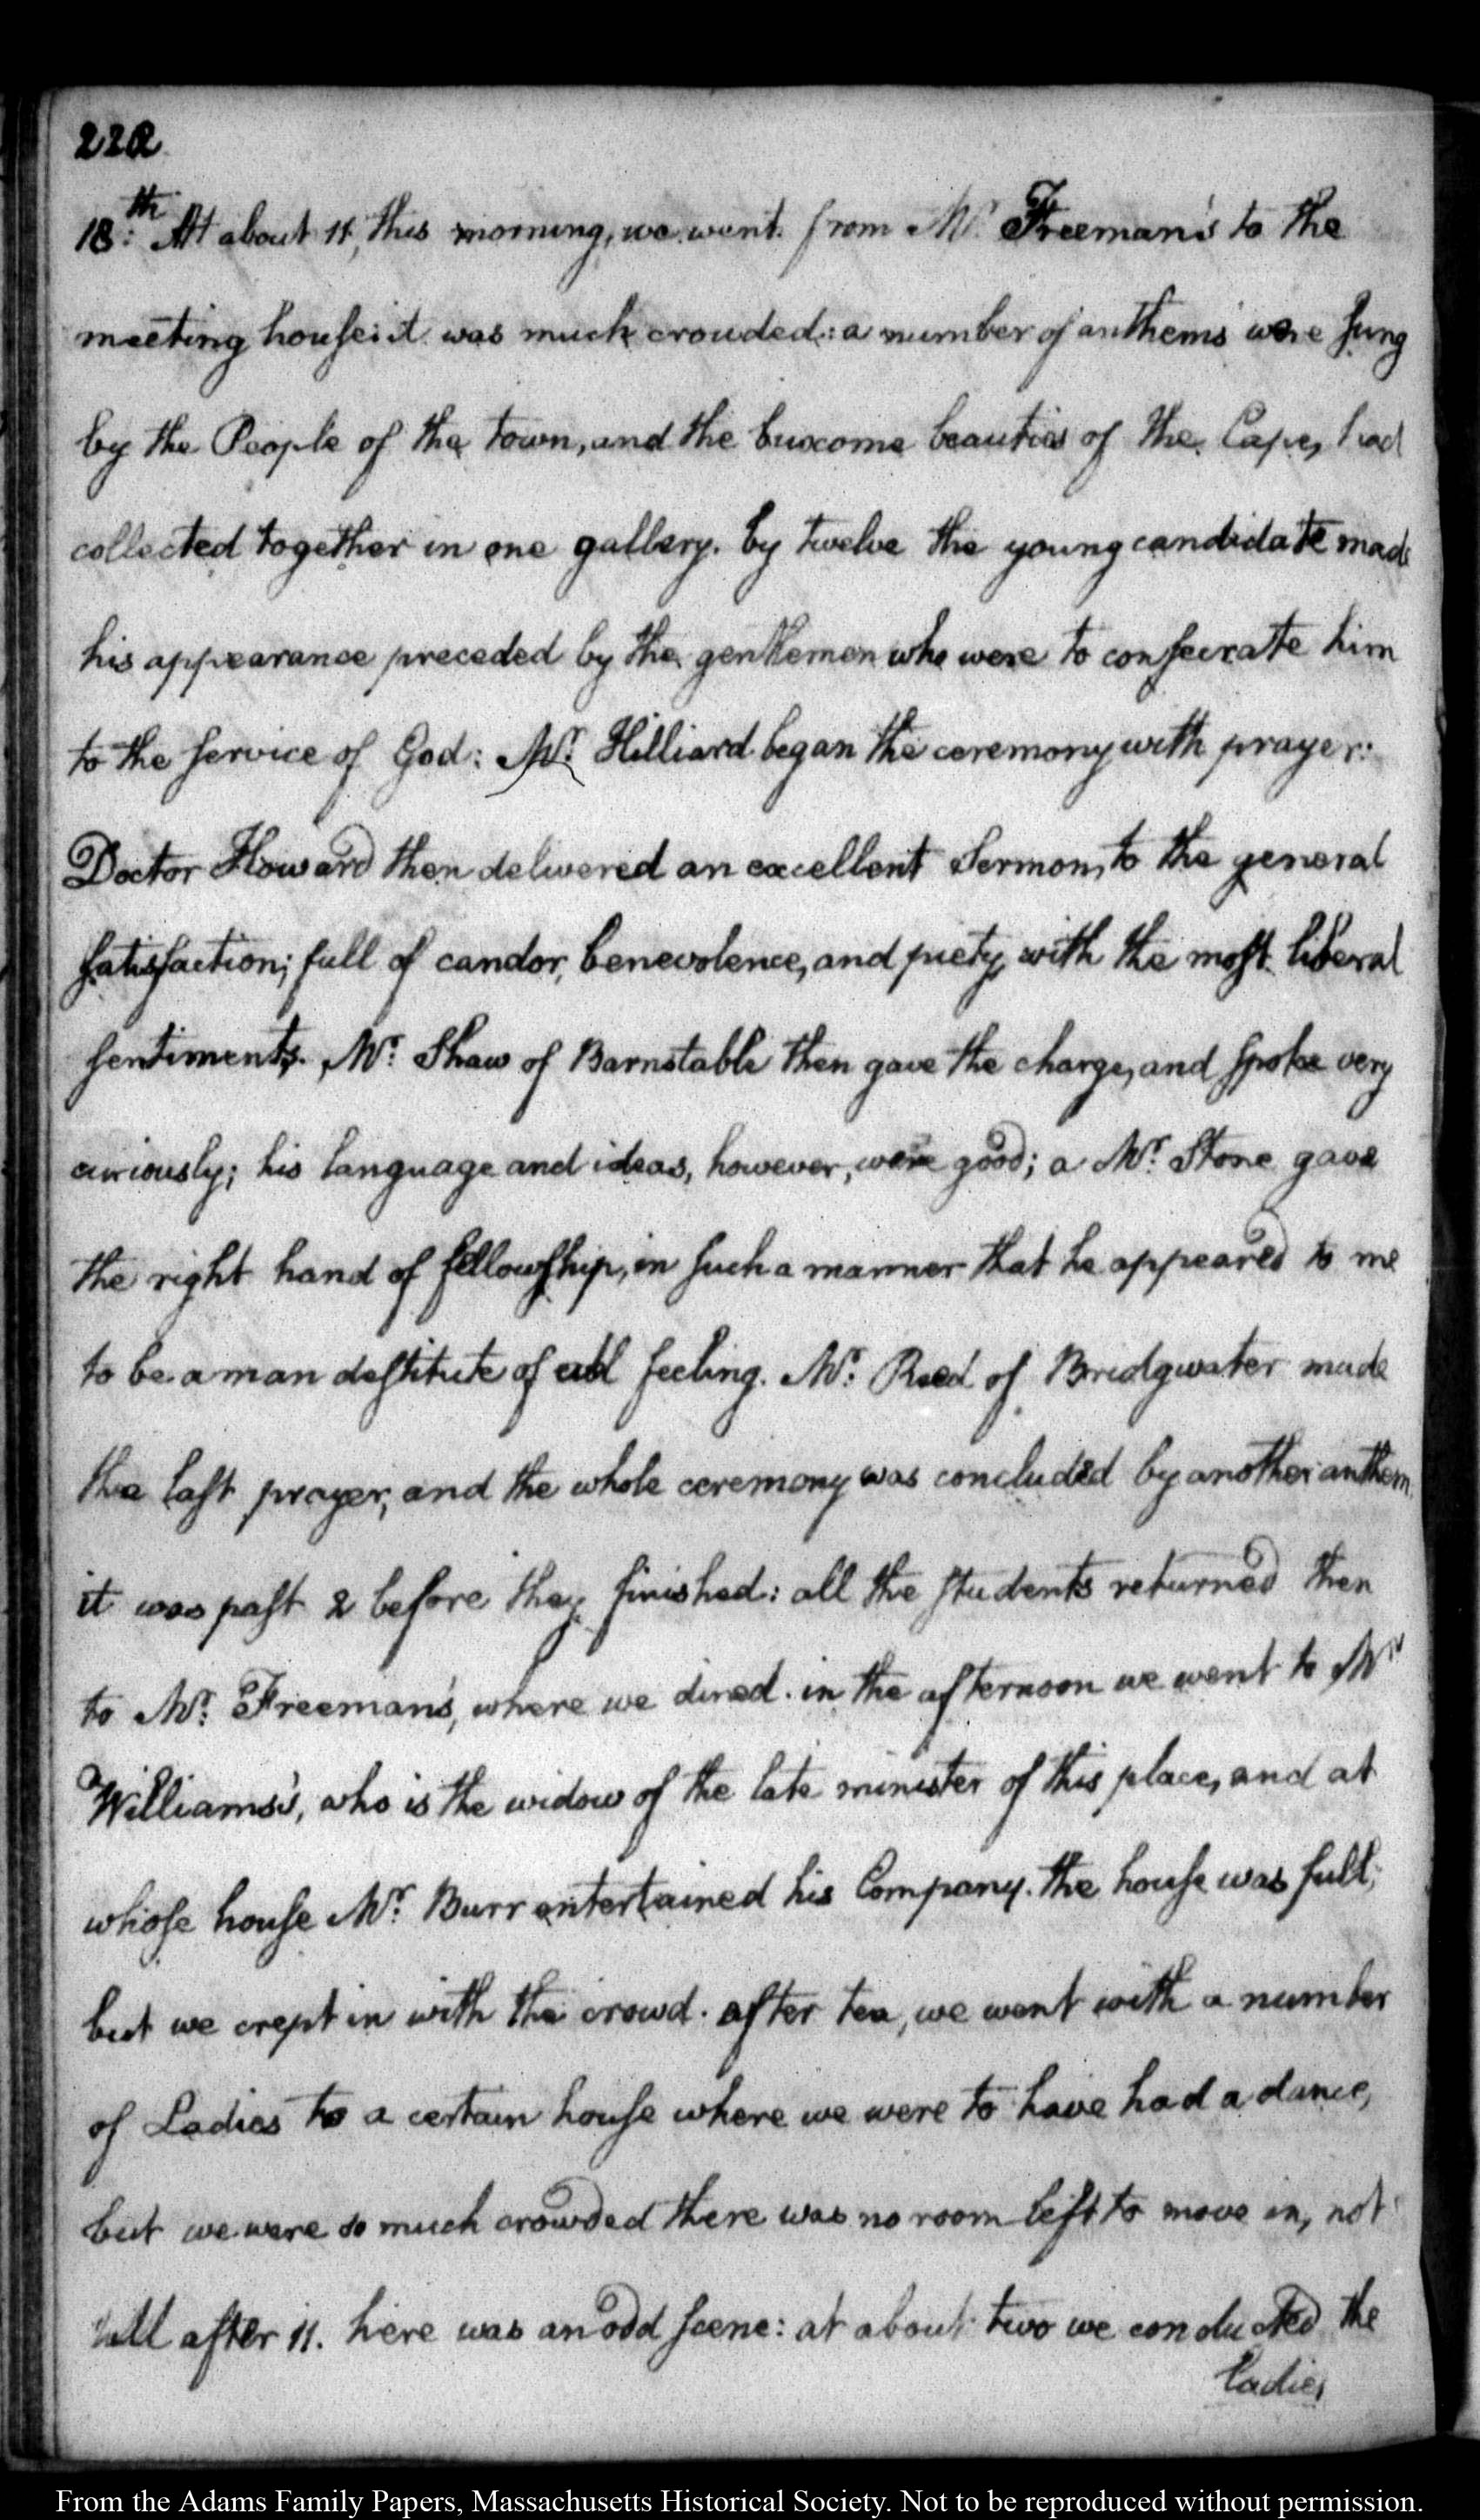 222
18:th At about 11, this morning, we went from Mr. Freeman's to the
meeting house: it was much crowded: a number of anthems were sung
by the People of the town, and the buxome beauties of the Cape, had
collected together in one gallery. by twelve the young candidate made
his appearance preceded by the gentlemen who were to consecrate him
to the service of God: Mr. Hilliard began the ceremony with prayer:
Doctor Howard then delivered an excellent Sermon, to the general
satisfaction; full of candor, benevolence, and piety, with the most liberal
sentiments. Mr. Shaw of Barnstable then gave the charge, and spoke very
curiously; his language and ideas, however, were good; a Mr. Stone gave
the right hand of fellowship, in such a manner that he appeared to me
to be a man destitute of all feeling. Mr. Reed of Bridgwater made
the last prayer, and the whole ceremony was concluded by another anthem.
it was past 2 before they finished: all the students returned then
to Mr. Freeman's, where we dined. in the afternoon we went to Mrs
Williams's, who is the widow of the late minister of this place, and at
whose house Mr. Burr entertained his Company. the house was full;
but we crept in with the crowd. after tea, we went with a number
of Ladies to a certain house where we were to have had a dance,
but we were so much crowded there was no room left to move in, not
till after 11. here was an odd scene: at about two we conducted the
ladies
From the Adams Family Papers, Massachusetts Historical Society. Not to be reproduced without permission.